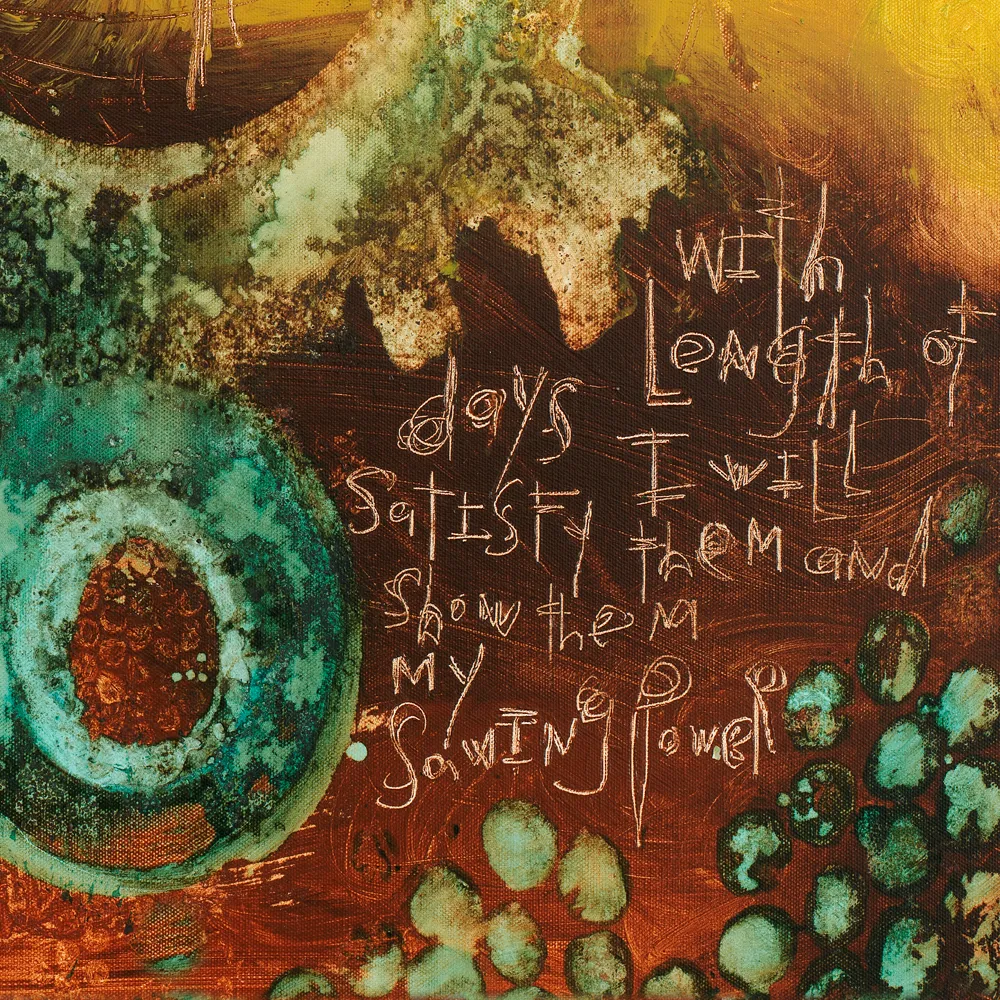 wITh
LeNgth of
days I wILL
SaTISFy theM aNd
Show theM
My
SawINg PoweR